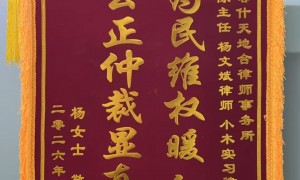 什天地合律师事务所
主任 杨文斌律师 个木实习
为民维权暖
公正仲裁显
杨女士
二零二六年